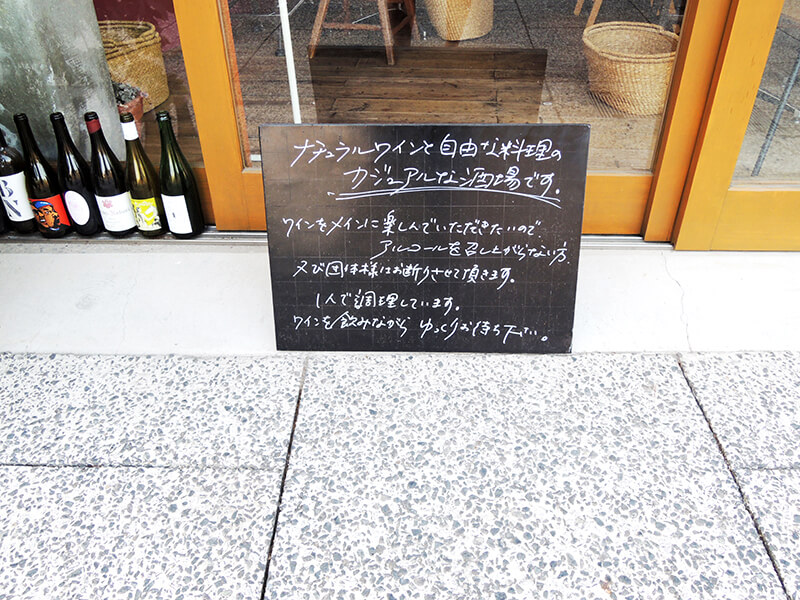 BN
ナチュラルワインと自由な料理の
カジュアルな酒場です。
ワインをメインに楽しんでいただきたいので
アルコールを召し上がらない方、
又び団体様はお断りさせて頂きます。
1人で調理しています。
ワインを飲みながら ゆっくりお待ち下さい。